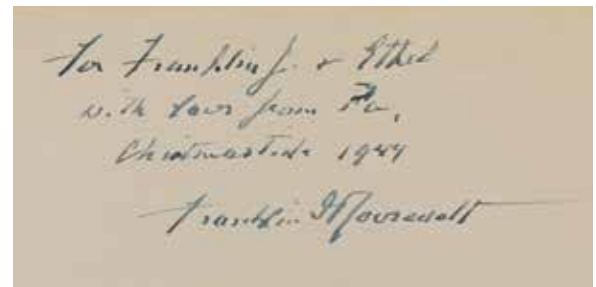 For Franklin J. & Ethel
with love from Pa,
Christmastide 1944
Franklin D Roosevelt